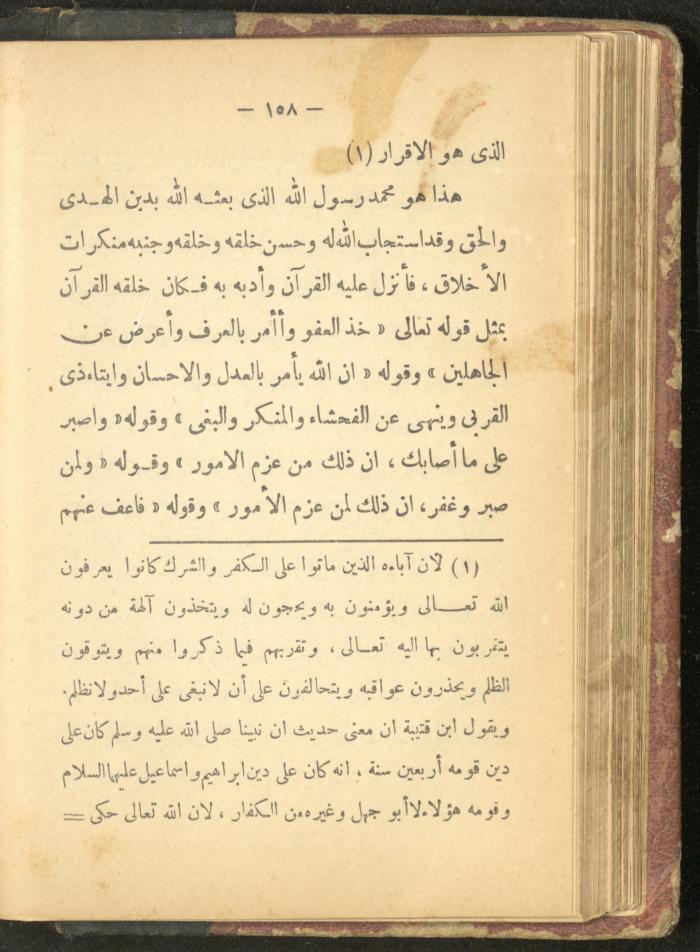 — ١٥٨ —
الذى هو الاقرار (١)
هذا هو محمد رسول الله الذى بعثـه الله بدين الهـدى
والحق وقد استجاب الله له وحسن خلقه وخلقه وجنبه منكرات
الأخلاق ، فأنزل عليه القرآن وأدبه به فـكان خلقه القرآن
بمثل قوله تعالى « خذ العفو وأأمر بالعرف وأعرض عن
الجاهلين » وقوله « ان الله يأمر بالعدل والاحسان وايتاء ذى
القربى وينهى عن الفحشاء والمنكر والبغى » وقوله « واصبر
على ما أصابك ، ان ذلك من عزم الامور » وقـوله « ولمن
صبر وغفر، ان ذلك لمن عزم الأمور » وقوله « فاعف عنهم
(١) لأن آباءه الذين ماتوا على الـكفر والشرك كانوا يعرفون
الله تعـالى ويؤمنون به ويحجون له ويتخذون آلهة من دونه
يتقربون بها اليه تعـالى ، وتقربهم فيما ذكروا منهم ويتوقون
الظلم ويحذرون عواقبه ويتحالفون على أن لانبغى على أحد ولا نظلم.
ويقول ابن قتيبة ان معنى حديث ان نبينا صلى الله عليه وسلم كان على
دين قومه أربعين سنة ، انه كان على دين ابراهيم واسماعيل عليهما السلام
وقومه هؤلاء لا أبو جهل وغيره من الـكفار ، لان الله تعالى حكى =